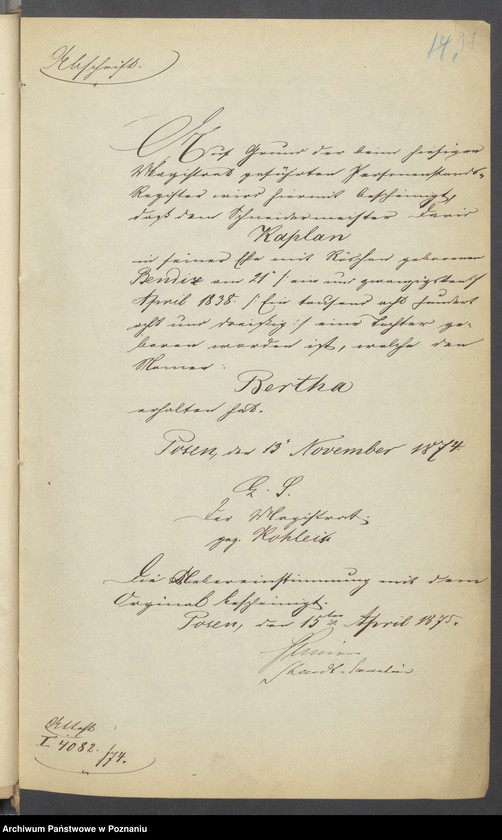 14. 17
Abschrift.
Auf Grund der beim hiesigen
Magistrat geführten Personenstands-
Register wird hiermit bescheinigt,
daß dem Schneidermeister David
Kaplan
in seiner Ehe mit Röschen geborenen
Bendix am 21t /: ein und zwanzigsten :/
April 1838 /: Ein tausend acht hundert
acht und dreißig :/ eine Tochter ge-
boren worden ist, welche den
Namen:
Bertha
erhalten hat.
Posen, den 13t November 1874.
L. S.
Der Magistrat.
gez. Kohleis
Die Uebereinstimmung mit dem
Orginal bescheinigt.
Posen, den 15ten April 1875.
Attest
I. 4082./74.
Archiwum Państwowe w Poznaniu